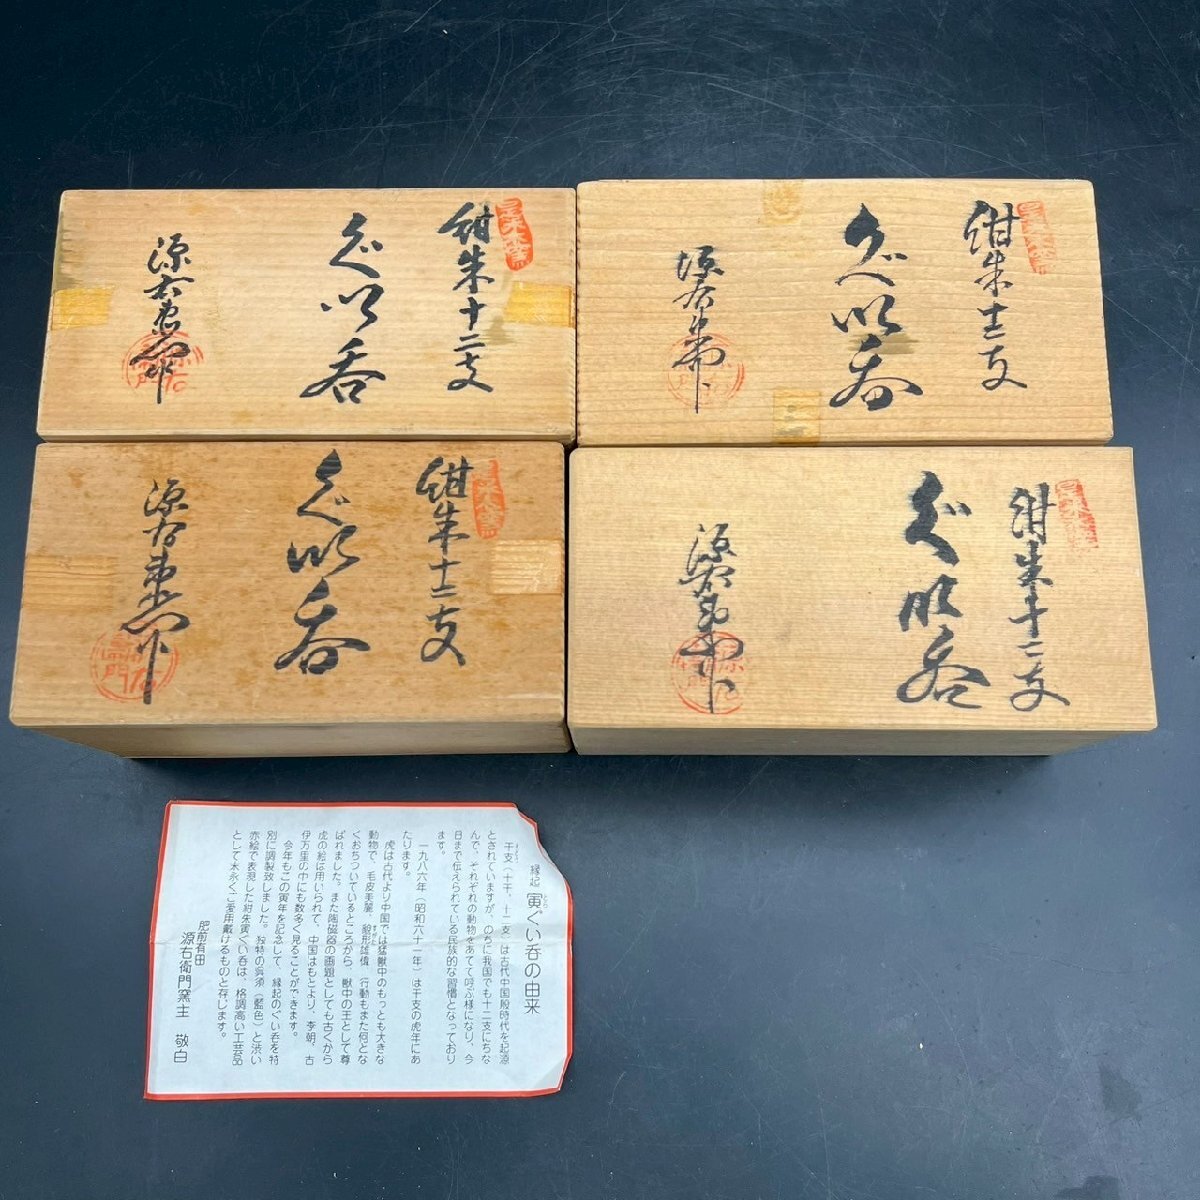 紺朱十二支
ぐい呑
源右衛門作
紺朱十二支
ぐい呑
源右衛門作
紺朱十二支
ぐい呑
源右衛門作
紺朱十二支
ぐい呑
源右衛門作
縁起 寅ぐい呑の由来
干支(十干、十二支)は古代中国殷時代を起源
とされていますが、のちに我国でも十二支にちな
んで、それぞれの動物をあてて呼ぶ様になり、今
日まで伝えられている民族的な習慣となっており
ます。
一九八六年(昭和六十一年)は干支の虎年にあ
たります。
虎は古代より中国では猛獣中のもっとも大きな
動物で、毛皮美麗、貌形雄偉、行動もまた何とな
くおちついているところから、獣中の王として尊
ばれました。また陶磁器の画題としても古くから
虎の絵は用いられて、中国はもとより、李朝、古
伊万里の中にも数多く見ることができます。
今年もこの寅年を記念して、縁起のぐい呑を特
別に調製致しました。独特の呉須(藍色)と渋い
赤絵で表現した紺朱寅ぐい呑は、格調高い工芸品
として末永くご愛用戴けるものと存じます。
肥前有田
源右衛門窯主 敬白